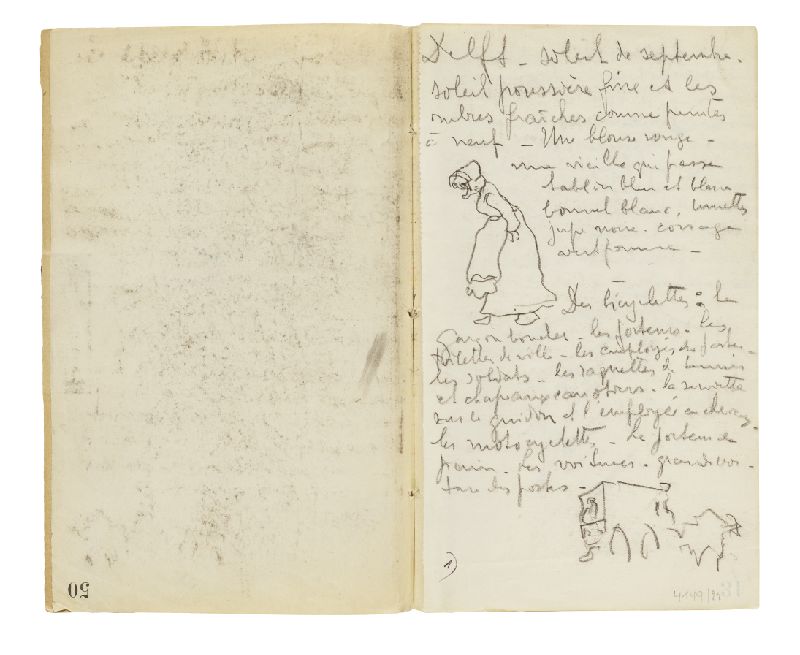 Delft - soleil de septembre.
soleil poussière fine et les
ombres fraîches comme peintes
à neuf - Une blouse rouge -
une vieille qui passe
tablier bleu et blanc
bonnet blanc, lunettes
jupe noire. corsage
Des bicyclettes : le
garçon boucher - les porteurs. les
toilettes de ville - les employés des postes -
les soldats - les raquettes de tennis
et chapeaux canotiers. la serviette
sur le guidon et l'employé en cheveux.
les motocyclettes. le porteur de
pain. les voitures. grande voi-
ture des postes -
1)
50
4149/29